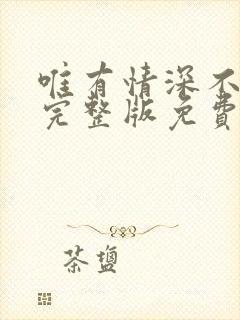 唯有情深不
完整版免費
茶鹽